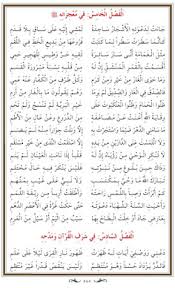 اَلْفَصْلُ الْخَامِسُ: فِي مُعْجِزَاتِهِ ﷺ
جَاءَتْ لِدَعْوَتِهِ الْأَشْجَارُ سَاجِدَةً تَمْشِي إِلَيْهِ عَلَى سَاقٍ بِلَا قَدَمِ
كَأَنَّمَا سَطَرَتْ سَطْرًا لِمَا كَتَبَتْ فُرُوعُهَا مِنْ بَدِيعِ الْخَطِّ فِي اللَّقَمِ
مِثْلَ الْغَمَامَةِ أَنَّى سَارَ سَائِرَةً تَقِيهِ حَرَّ وَطِيسٍ لِلْهَجِيرِ حَمِي
أَقْسَمْتُ بِالْقَمَرِ الْمُنْشَقِّ إِنَّ لَهُ مِنْ قَلْبِهِ نِسْبَةً مَبْرُورَةَ الْقَسَمِ
وَمَا حَوَى الْغَارُ مِنْ خَيْرٍ وَمِنْ كَرَمٍ وَكُلُّ طَرْفٍ مِنَ الْكُفَّارِ عَنْهُ عَمِي
فَالصِّدْقُ فِي الْغَارِ وَالصِّدِّيقُ لَمْ يَرِمَا وَهُمْ يَقُولُونَ مَا بِالْغَارِ مِنْ أَرِمِ
ظَنُّوا الْحَمَامَ وَظَنُّوا الْعَنْكَبُوتَ عَلَى خَيْرِ الْبَرِيَّةِ لَمْ تَنْسُجْ وَلَمْ تَحُمِ
وِقَايَةُ اللهِ أَغْنَتْ عَنْ مُضَاعَفَةٍ مِنَ الدُّرُوعِ وَعَنْ عَالٍ مِنَ الْأُطُمِ
مَا سَامَنِي الدَّهْرُ ضَيْمًا وَاسْتَجَرْتُ بِهِ إِلَّا وَنِلْتُ جِوَارًا مِنْهُ لَمْ يُضَمِ
وَلَا الْتَمَسْتُ غِنَى الدَّارَيْنِ مِنْ يَدِهِ إِلَّا اسْتَلَمْتُ النَّدَى مِنْ خَيْرِ مُسْتَلَمِ
لَا تُنْكِرِ الْوَحْيَ مِنْ رُؤْيَاهُ إِنَّ لَهُ قَلْبًا إِذَا نَامَتِ الْعَيْنَانِ لَمْ يَنَمِ
وَذَاكَ حِينَ بُلُوغٍ مِنْ نُبُوَّتِهِ فَلَيْسَ يُنْكَرُ فِيهِ حَالُ مُحْتَلِمِ
تَبَارَكَ اللهُ مَا وَحْيٌ بِمُكْتَسَبٍ وَلَا نَبِيٌّ عَلَى غَيْبٍ بِمُتَّهَمِ
كَمْ أَبْرَأَتْ وَصِبًا بِاللَّمْسِ رَاحَتُهُ وَأَطْلَقَتْ أَرِبًا مِنْ رِبْقَةِ اللَّمَمِ
وَأَحْيَتِ السَّنَةَ الشَّهْبَاءَ دَعْوَتُهُ حَتَّى حَكَتْ غُرَّةً فِي الْأَعْصُرِ الدُّهُمِ
بِعَارِضٍ جَادَ أَوْ خِلْتَ الْبِطَاحَ بِهَا سَيْبٌ مِنَ الْيَمِّ أَوْ سَيْلٌ مِنَ الْعَرِمِ
اَلْفَصْلُ السَّادِسُ: فِي شَرَفِ الْقُرْآنِ وَمَدْحِهِ
دَعْنِي وَوَصْفِيَ آيَاتٍ لَهُ ظَهَرَتْ ظُهُورَ نَارِ الْقِرَى لَيْلًا عَلَى عَلَمِ
فَالدُّرُّ يَزْدَادُ حُسْنًا وَهُوَ مُنْتَظِمٌ وَلَيْسَ يَنْقُصُ قَدْرًا غَيْرَ مُنْتَظِمِ